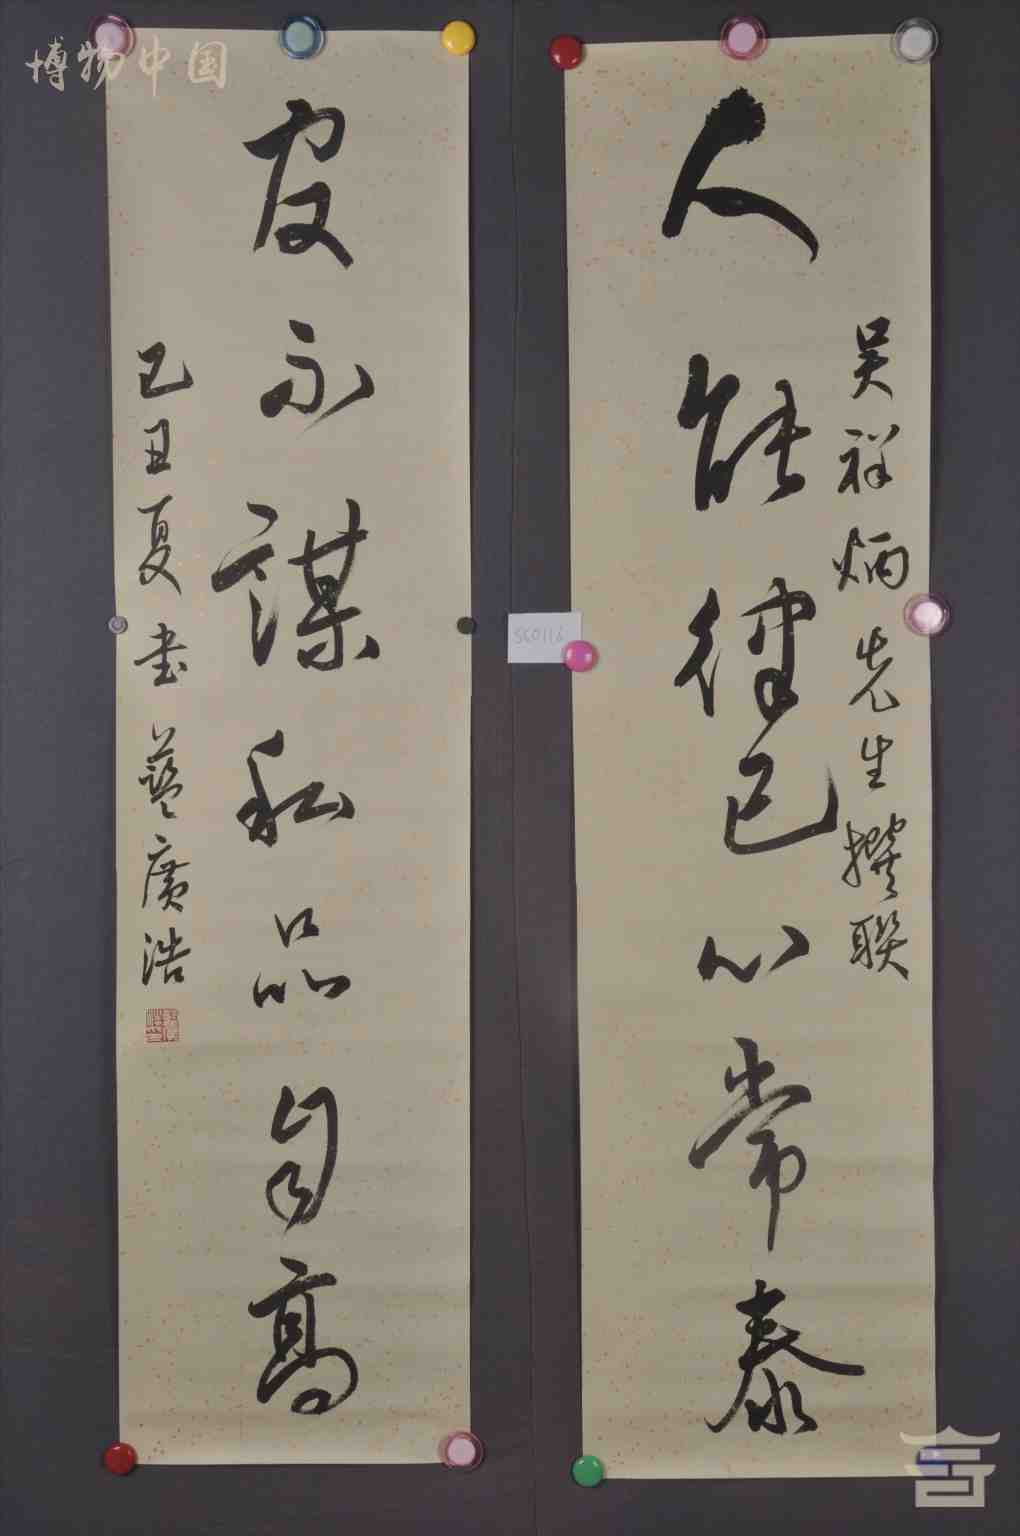 人能律己心常泰
吴祥炳先生撰联
官不谋私品自高
己丑夏书 蓝广浩
SC0116
博物中国